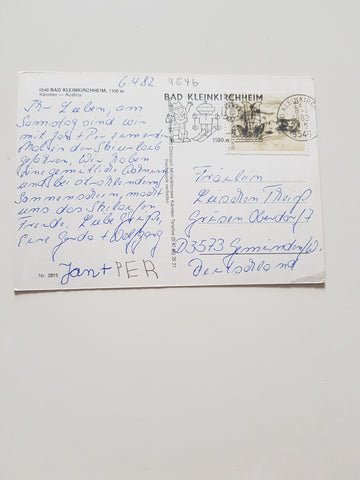 6482 9546
9546 BAD KLEINKIRCHHEIM, 1100 m
Kärnten — Austria
BAD KLEINKIRCHHEIM
1100 m
Ihr Lieben, am
Samstag sind wir
mit Jan + Per zum
mal in den Skiurlaub
gefahren. Wir haben
eine gemütliche Wohnung
und bei strahlendem
Sonnenschein macht
uns das Skilaufen
Freude. Liebe Grüße,
Eure Gerda + Wolfgang
Jan + PER
Nr. 2815
Fräulein
Lieschen Theiß
Grüsen Oberdorf 7
D3573 Gemünden/W.
Deutschland